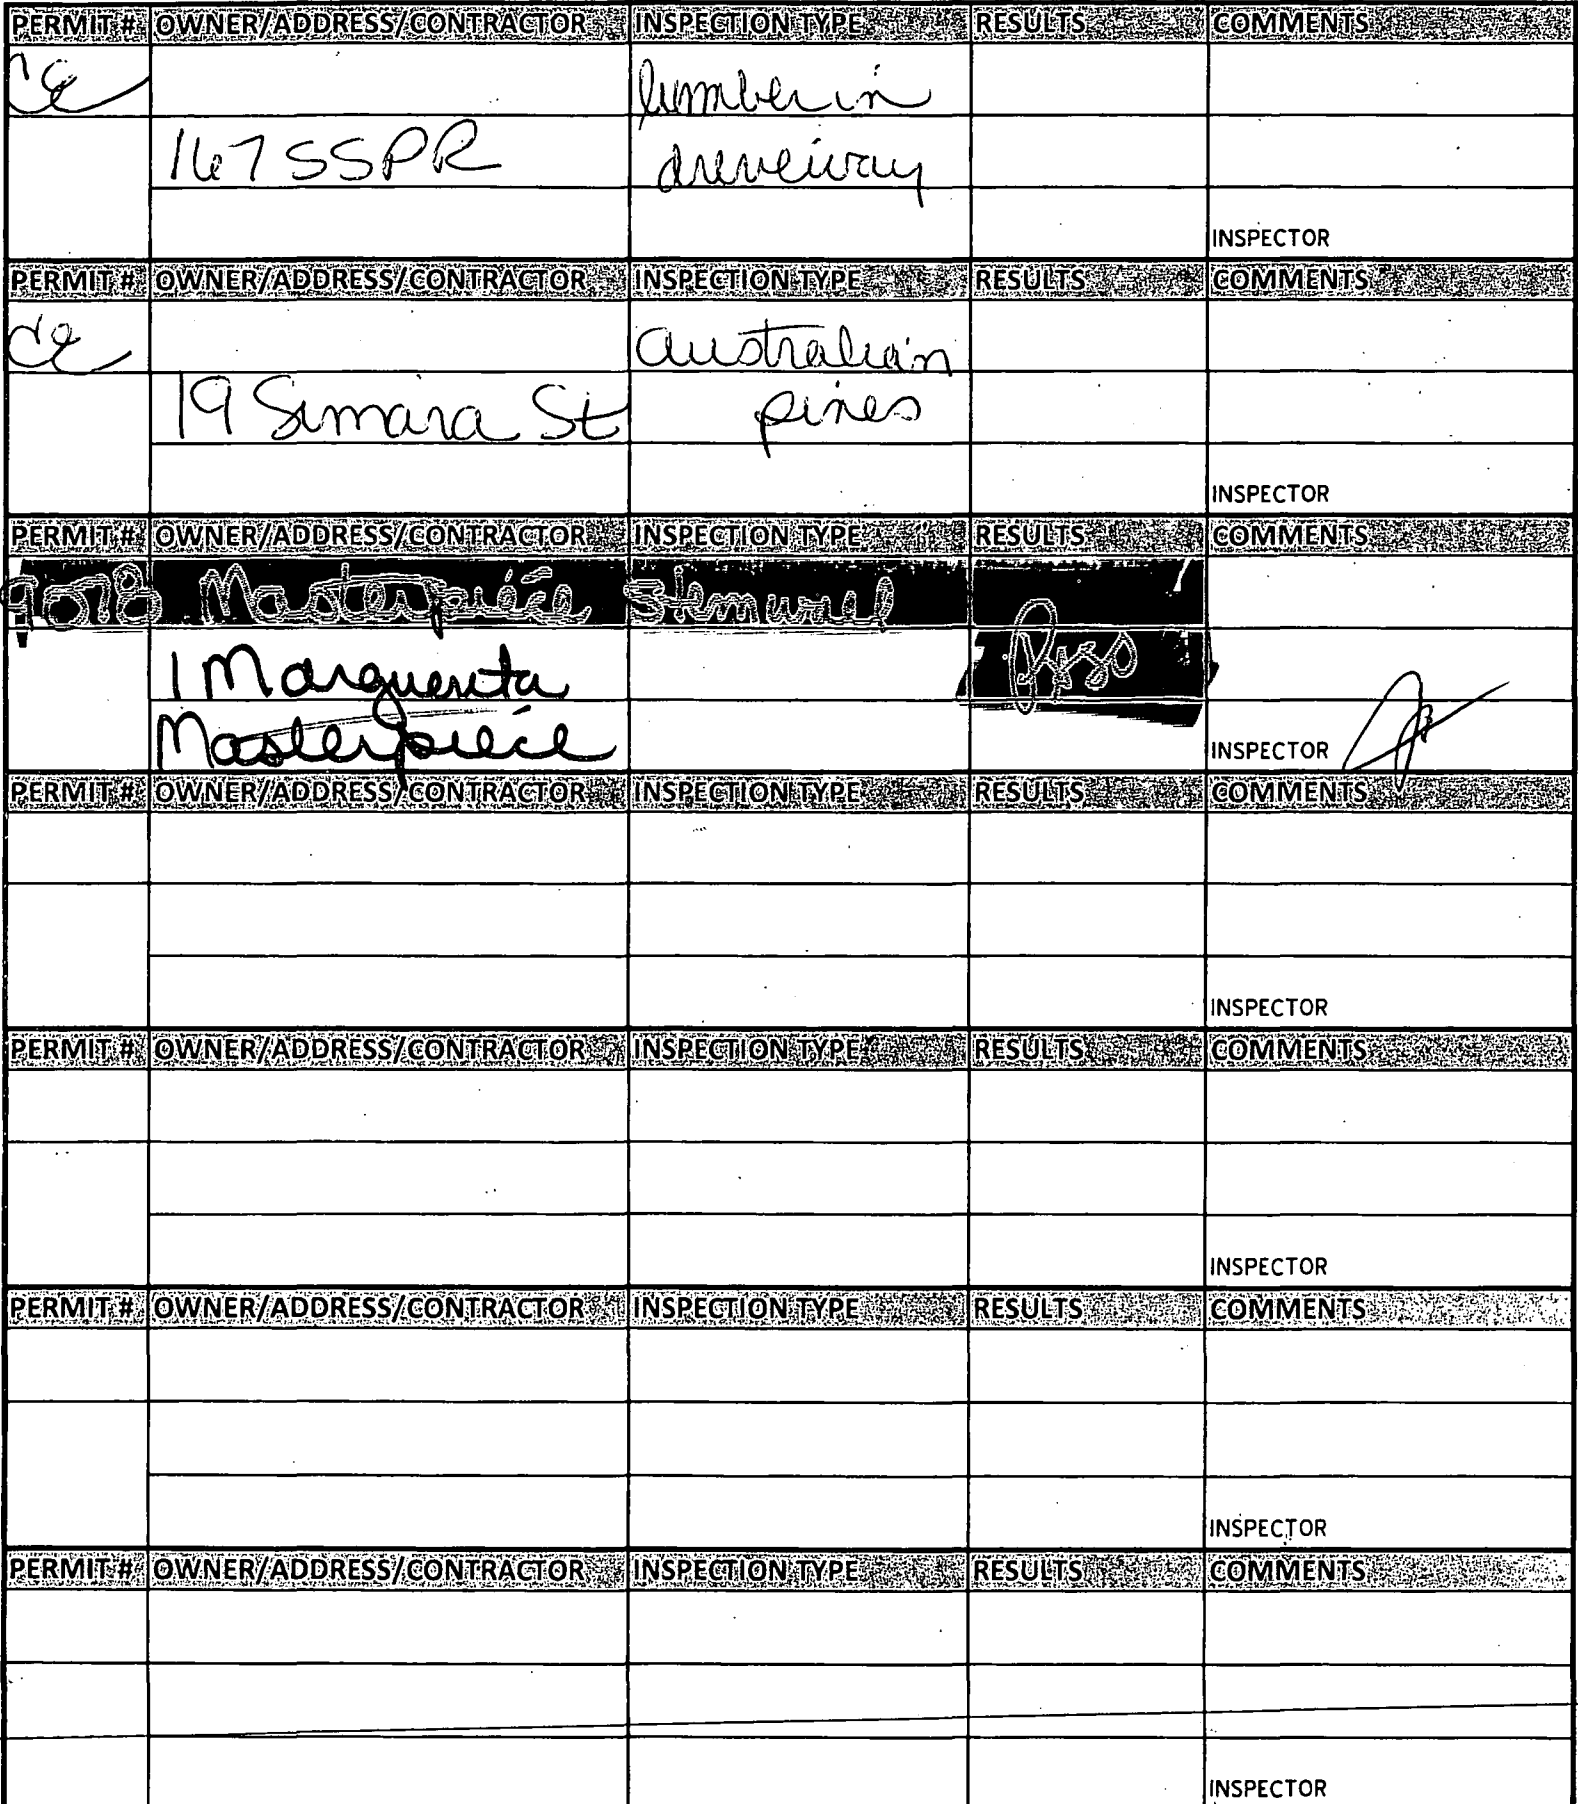 PERMIT # OWNER/ADDRESS/CONTRACTOR INSPECTION TYPE RESULTS COMMENTS
CE lumber in
167 SSPR driveway
INSPECTOR
PERMIT # OWNER/ADDRESS/CONTRACTOR INSPECTION TYPE RESULTS COMMENTS
CE australian
19 Simara St pines
INSPECTOR
PERMIT # OWNER/ADDRESS/CONTRACTOR INSPECTION TYPE RESULTS COMMENTS
9078 Masterpiece Stemwall
1 Marguerita Pass
Masterpiece INSPECTOR
PERMIT # OWNER/ADDRESS/CONTRACTOR INSPECTION TYPE RESULTS COMMENTS
INSPECTOR
PERMIT # OWNER/ADDRESS/CONTRACTOR INSPECTION TYPE RESULTS COMMENTS
INSPECTOR
PERMIT # OWNER/ADDRESS/CONTRACTOR INSPECTION TYPE RESULTS COMMENTS
INSPECTOR
PERMIT # OWNER/ADDRESS/CONTRACTOR INSPECTION TYPE RESULTS COMMENTS
INSPECTOR